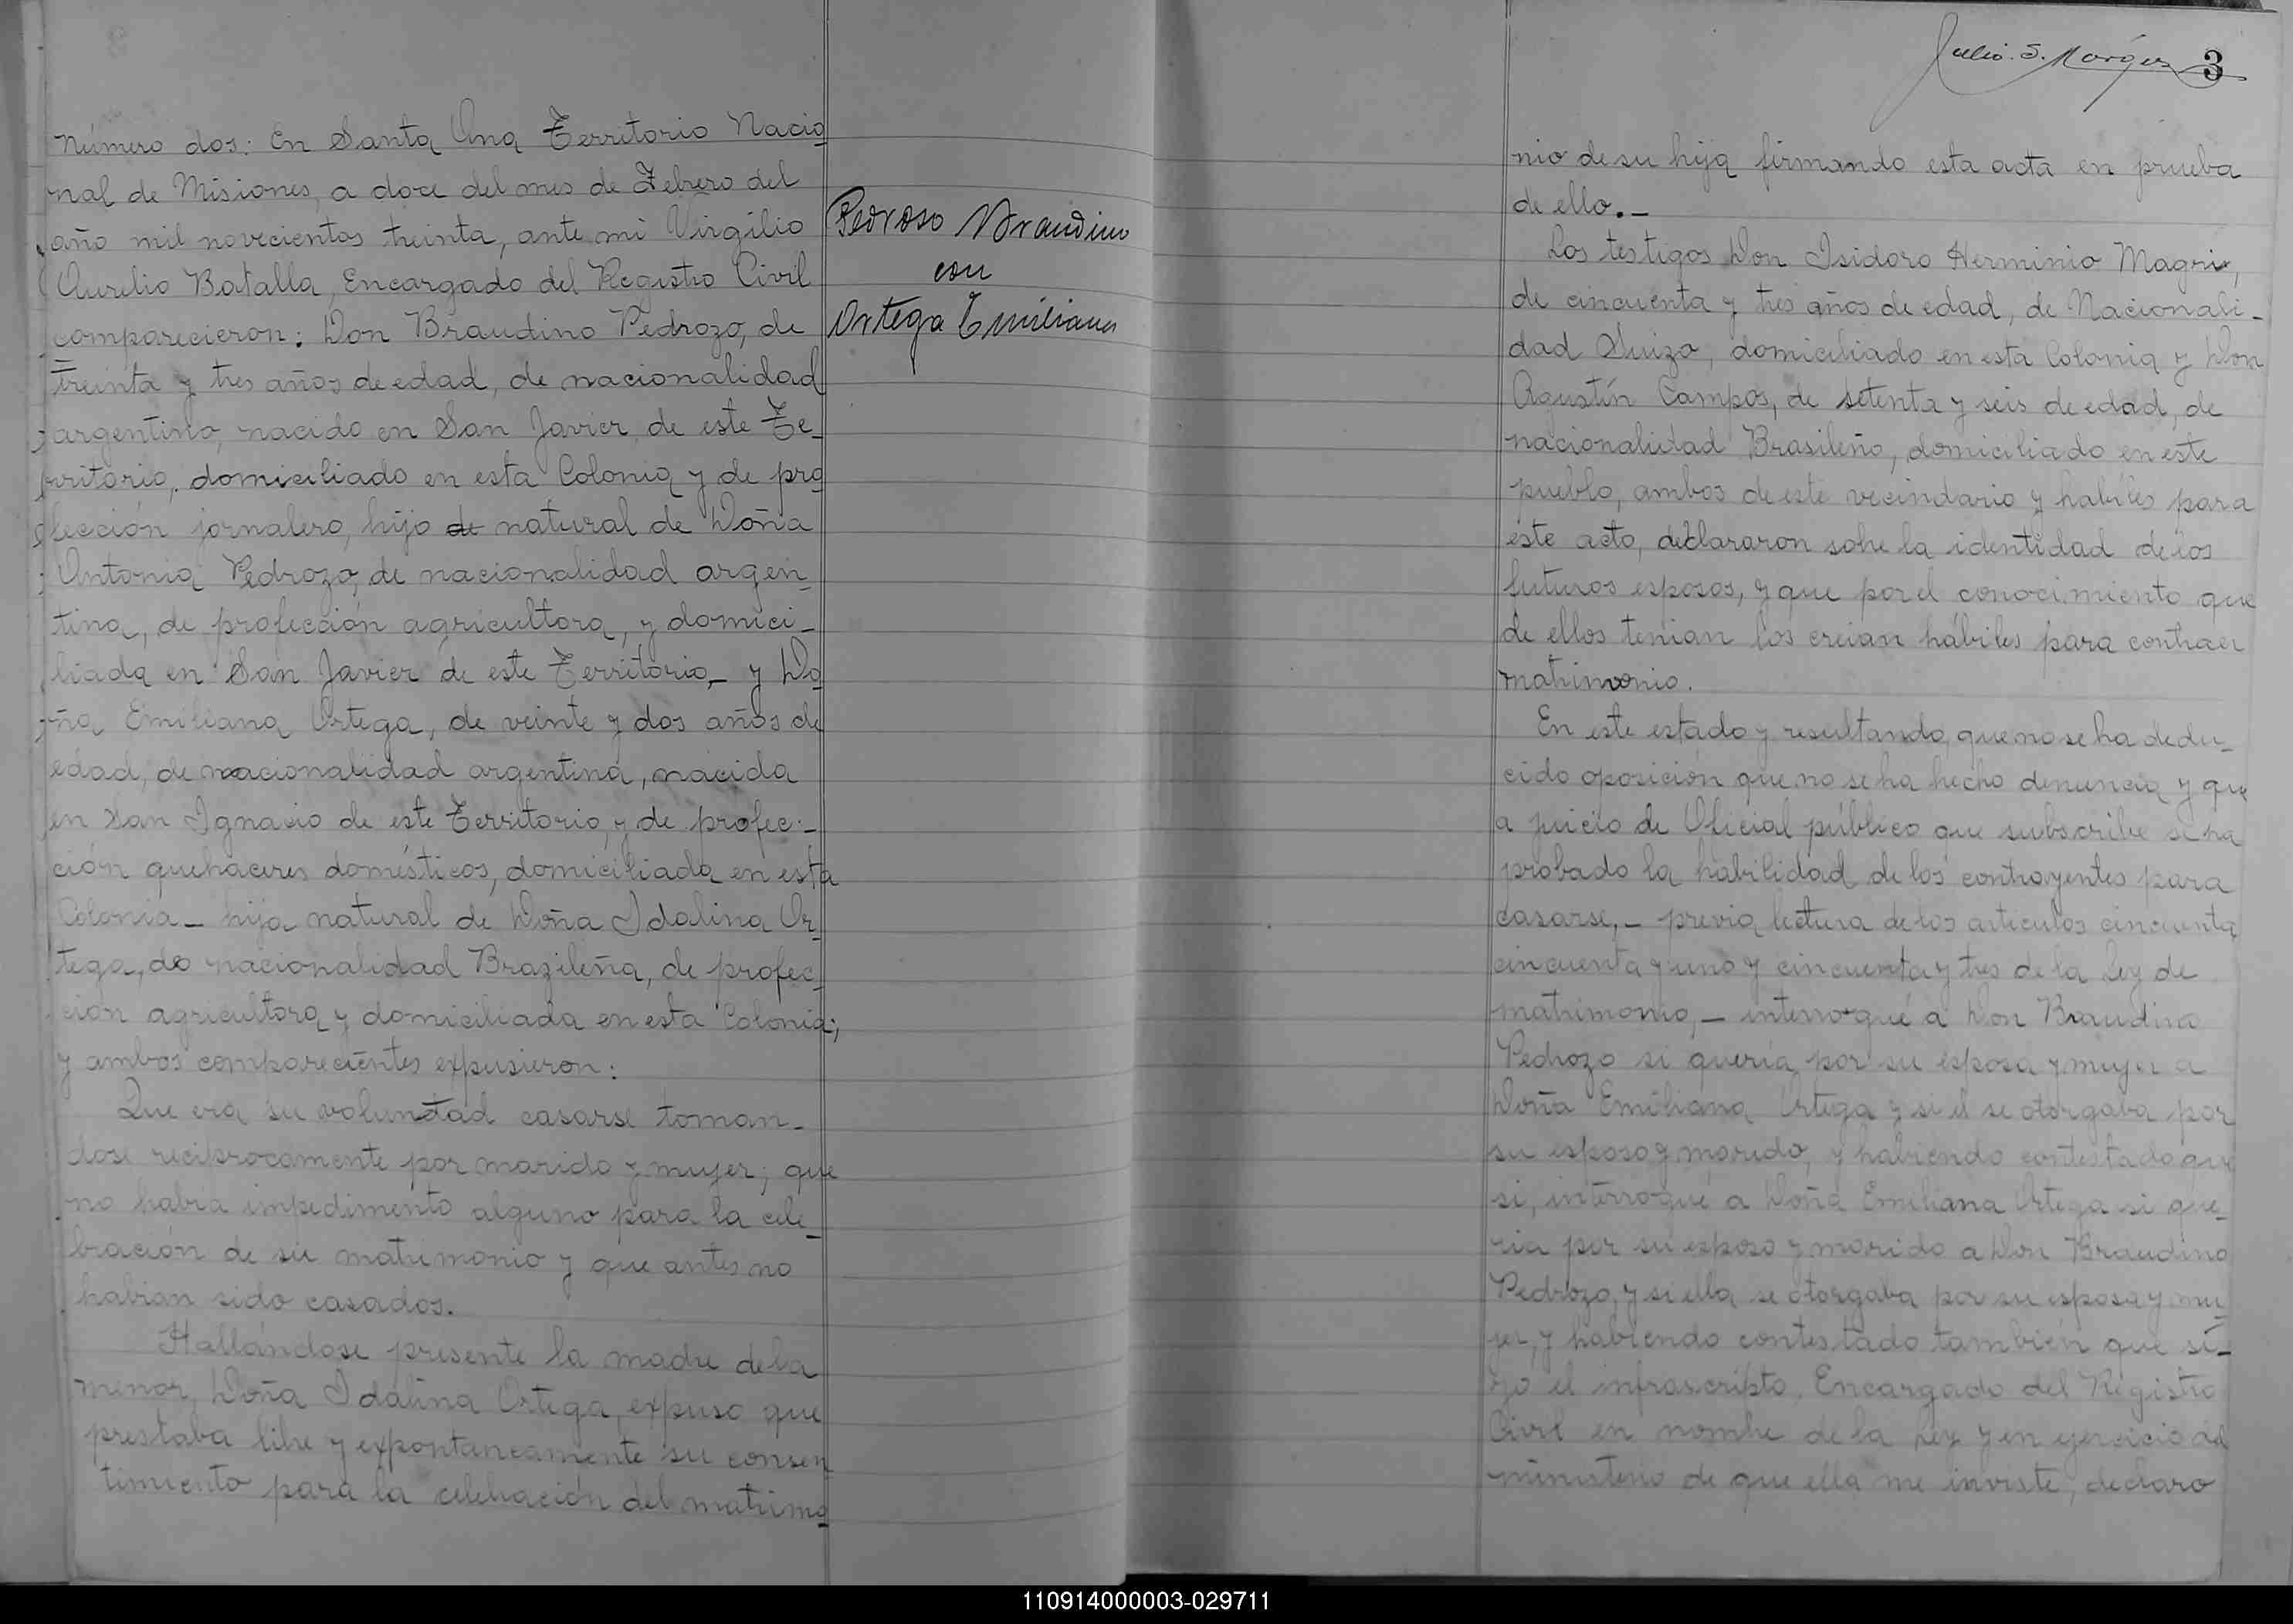 Número dos: En Santa Ana Territorio Nacio
nal de Misiones, a doce del mes de Febrero del
año mil novecientos treinta, ante mi Virgilio
Aurelio Batalla, Encargado del Registro Civil
comparecieron: Don Braudino Pedrozo, de
treinta y tres años de edad, de nacionalidad
argentino, nacido en San Javier de este Te-
rritorio, domiciliado en esta Colonia y de pro
fección jornalero, hijo de natural de Doña
Antonia Pedrozo, de nacionalidad argen-
tina, de profección agricultora, y domici-
liada en San Javier de este Territorio_ y Do
ña Emiliana Ortega, de veinte y dos años de
edad, de nacionalidad argentina, nacida
en San Ignacio de este Territorio, y de profec-
ción quehaceres domésticos, domiciliada en esta
Colonia_ hija natural de Doña Idalina Or-
tega, de nacionalidad Brazileña, de profec-
ción agricultora y domiciliada en esta Colonia;
y ambos comparecientes expusieron:
Que era su voluntad casarse toman-
dose reciprocamente por marido y mujer; que
no habia impedimento alguno para la cele-
bración de su matrimonio y que antes no
habian sido casados.
Hallándose presente la madre de la
menor, Doña Idalina Ortega, expuso que
prestaba libre y expontaneamente su consen
timiento para la celebración del matrimo
Pedroso Braudino
con
Ortega Emiliana
Julio. S. 3
nio de su hija firmando esta acta en prueba
de ello._
Los testigos Don Isidoro Herminio Magri,
de cincuenta y tres años de edad, de Nacionali-
dad Suizo, domiciliado en esta Colonia y Don
Agustín Campos, de setenta y seis de edad, de
nacionalidad Brasileño, domiciliado en este
pueblo, ambos de este vecindario y habiles para
este acto, declararon sobre la identidad de los
futuros esposos, y que por el conocimiento que
de ellos tenian los creian hábiles para contraer
matrimonio.
En este estado y resultando que no se ha dedu-
cido oposición que no se ha hecho denuncia y que
a juicio de Oficial público que subscribe se ha
probado la habilidad de los contrayentes para
casarse,_ previa lectura de los articulos cincuenta
cincuenta y uno y cincuenta y tres de la Ley de
matrimonio,_ interrogué a Don Braudino
Pedrozo si queria por su esposa y mujer a
Doña Emiliana Ortega y si él se otorgaba por
su esposo y marido, y habiendo contestado que
si, interrogué a Doña Emiliana Ortega si que-
ria por su esposo y marido a Don Braudino
Pedrozo, y si ella se otorgaba por su esposa y mu-
jer, y habiendo contestado también que sí_
yo el infrascripto, Encargado del Registro
Civil en nombre de la Ley y en ejercicio del
ministerio de que ella me inviste, declaro
110914000003-029711